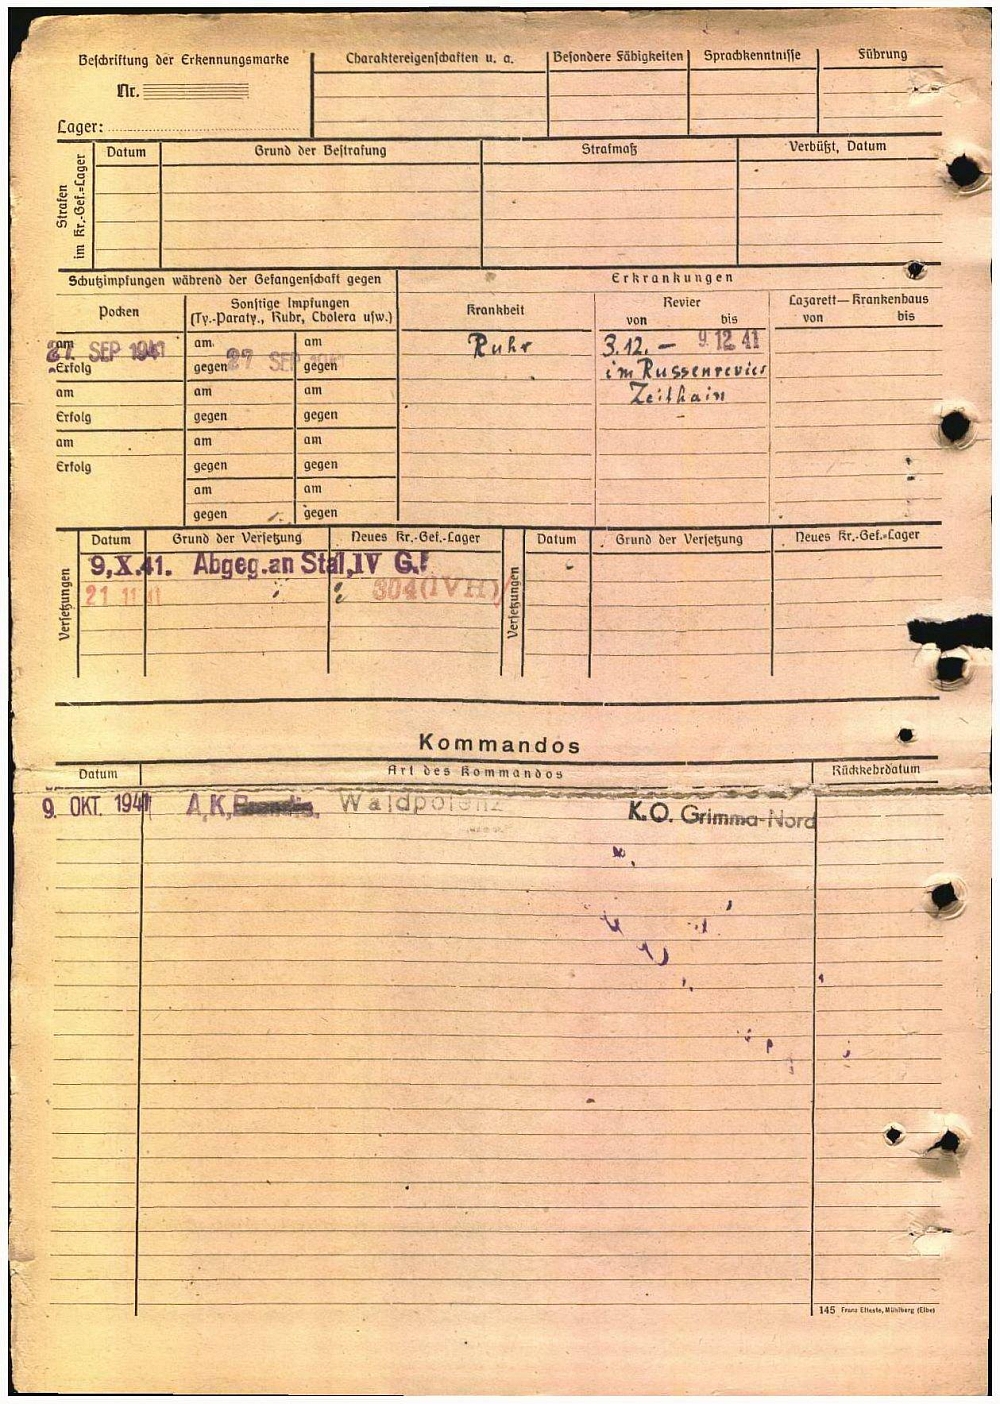 Beschriftung der Erkennungsmarke
Nr.
Lager:
Charaktereigenschaften u. a.
Besondere Fähigkeiten
Sprachkenntnisse
Führung
Strafen im Kr.-Gef.=Lager
Datum
Grund der Bestrafung
Strafmaß
Verbüßt, Datum
Schutzimpfungen während der Gefangenschaft gegen
Erkrankungen
Pocken
Sonstige Impfungen
(Ty.-Paraty., Ruhr, Cholera usw.)
Krankheit
Revier
von bis
Lazarett—Krankenhaus
von bis
am 27. SEP 1941
Erfolg
am am
gegen 27 SEP 1941 gegen
Ruhr
3.12. – 9.12.41
im Russenrevier
Zeithain
am am am
Erfolg gegen gegen
am am am
Erfolg gegen gegen
am am
gegen gegen
Versetzungen
Datum Grund der Versetzung Neues Kr.-Gef.-Lager
9.X.41. Abgeg.an Stal.IV G.!
21 11 41 " " 304(IVH)
Versetzungen
Datum Grund der Versetzung Neues Kr.-Gef.=Lager
Kommandos
Datum Art des Kommandos Rückkehrdatum
9. OKT. 1941 A.K.Brandis. Waldpolenz K.O. Grimma-Nord
145 Franz Elteste, Mühlberg (Elbe)